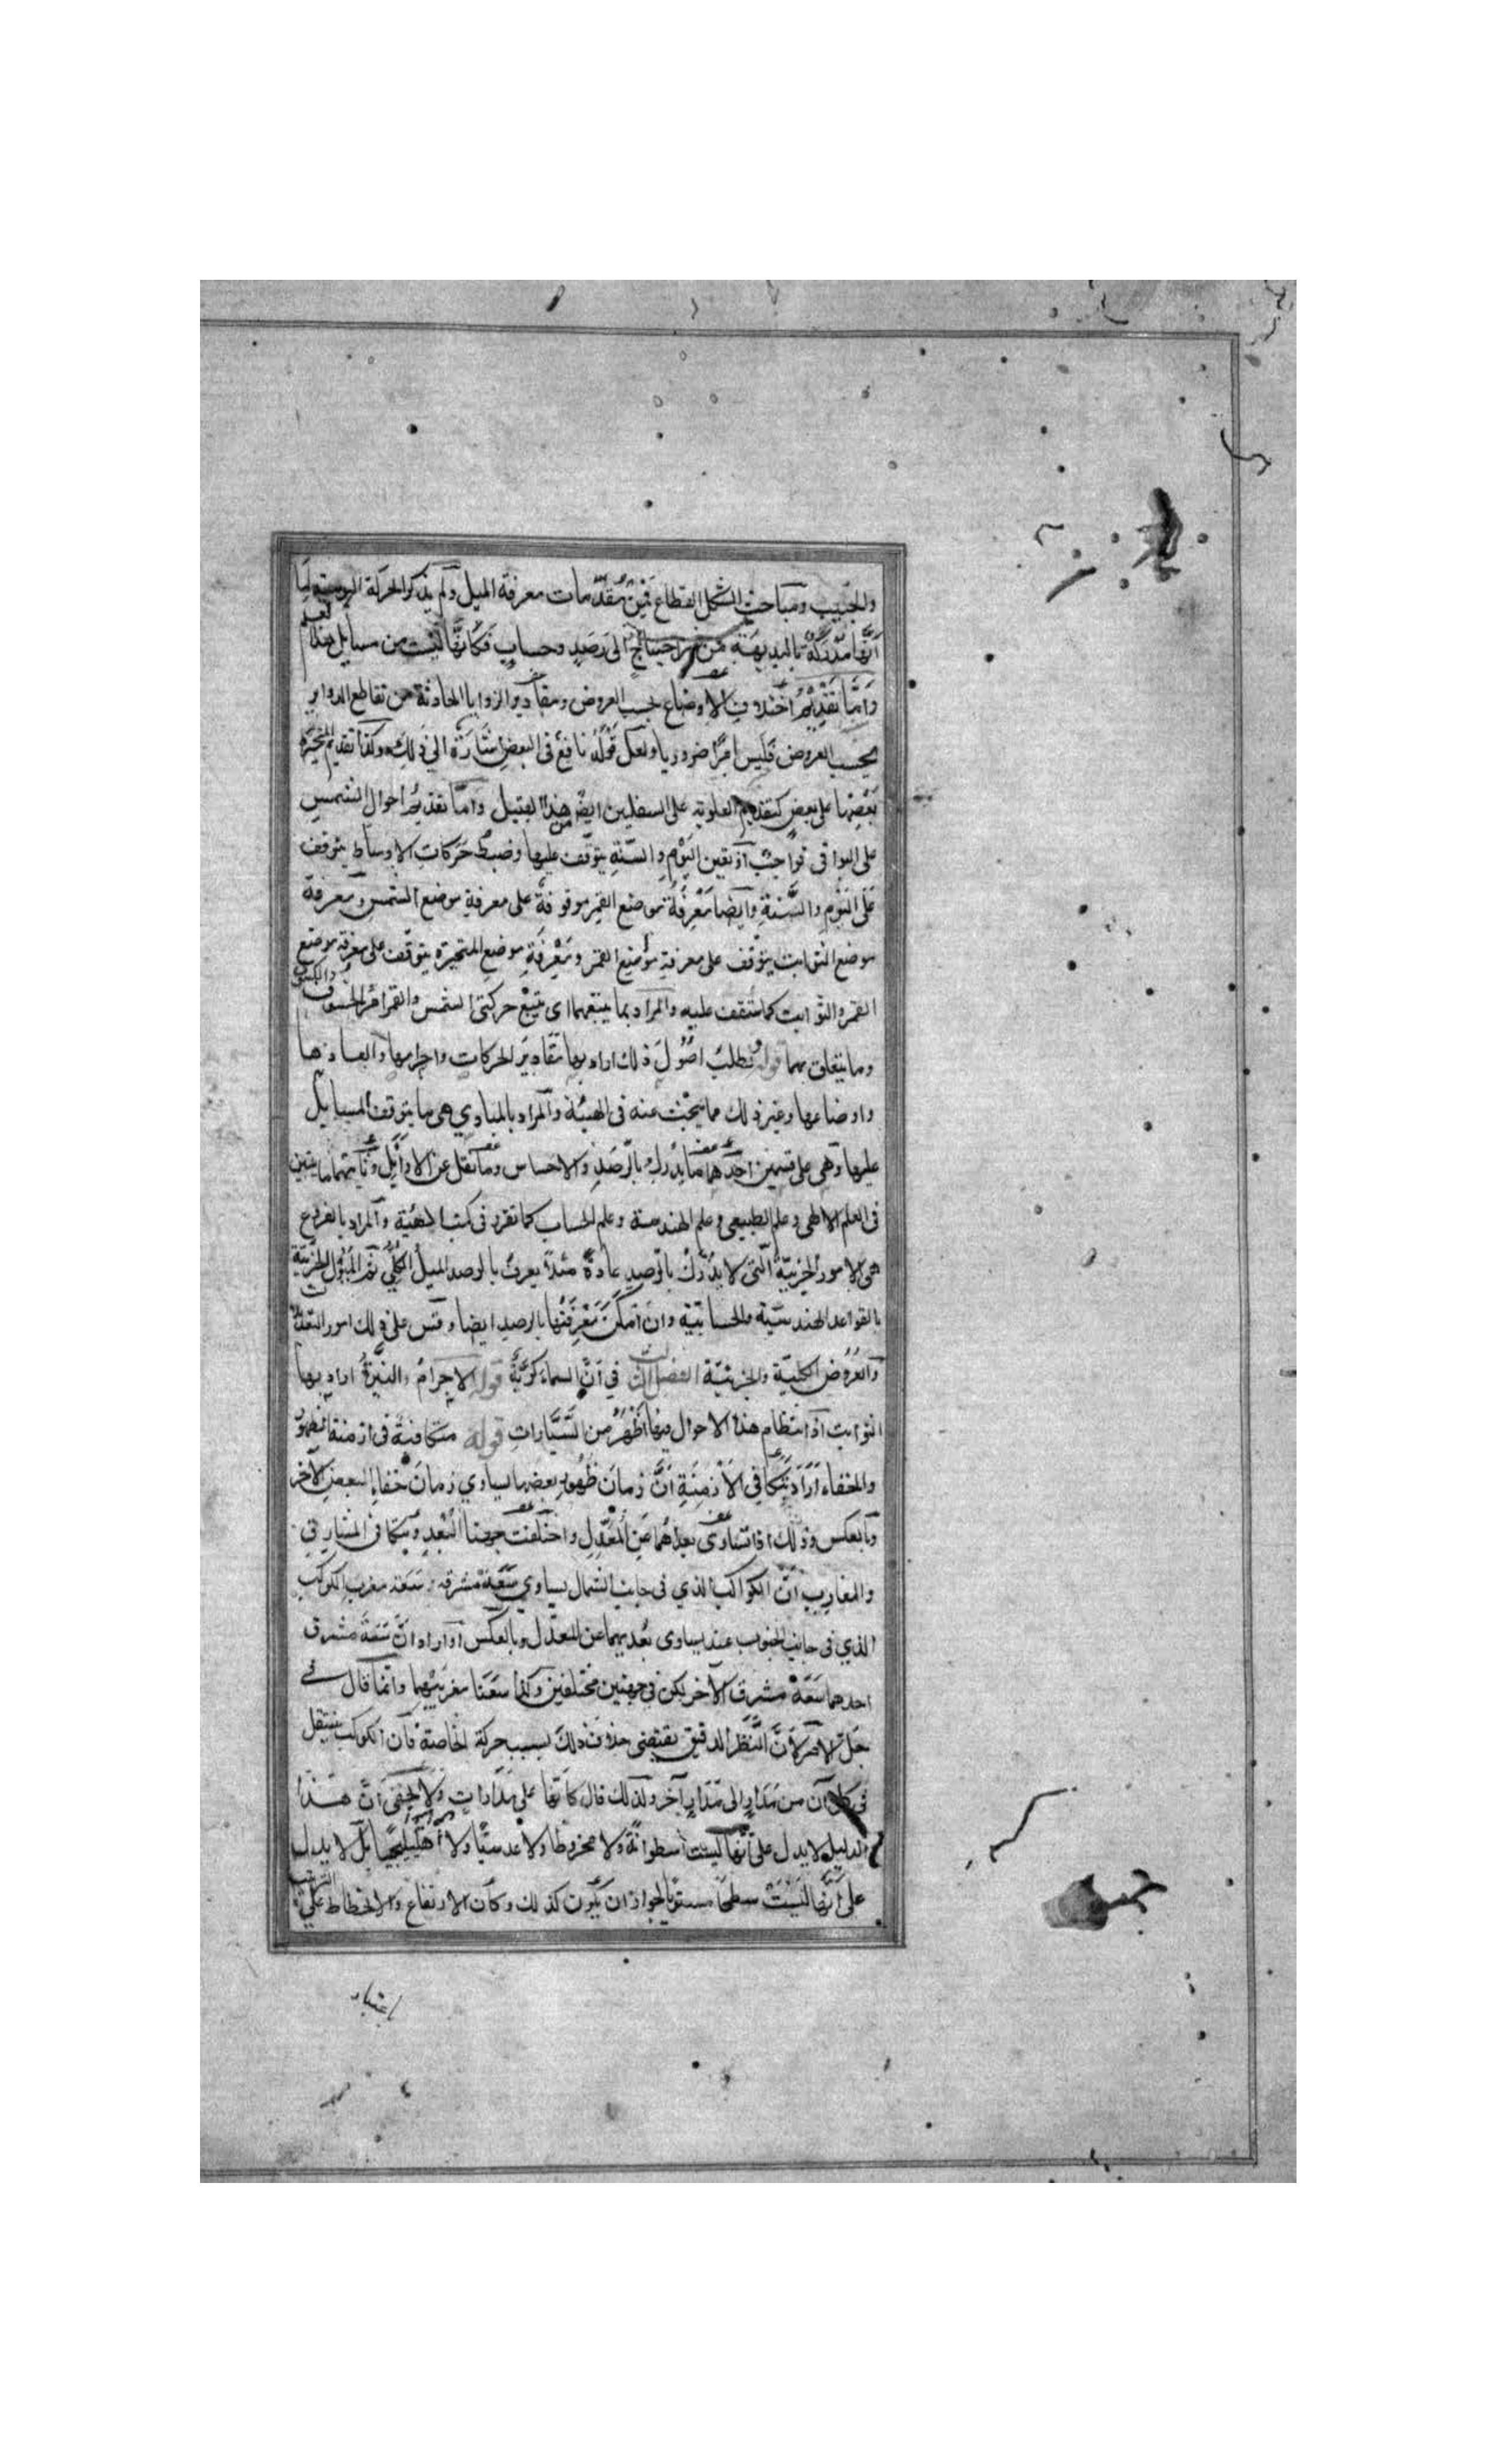 والجيب ومباحث الشكل القطاع فمن مقدمات معرفة الميل ولم يذكر الحركة اليومية لما
أنها مدركة بالبديهة من غير احتياج الى رصد وحساب فكأنها ليست من مسايل هذا العلم
وأما تقديم اختلاف الاوضاع بحسب العروض ومقادير الزوايا الحادثة من تقاطع الدواير
بحسب العروض فليس امرا ضروريا ولعل قوله نافع في البعض اشارة الي ذلك وكذا تقديم المتحيرة
بعضها على بعض كتقديم العلوية على السفليين ايضا من هذا القبيل واما تقديم احوال الشمس
على البواقى فواجب اذ تعين اليوم والسنة يتوقف عليها وضبط حركات الاوساط يتوقف
على اليوم والسنة وايضا معرفة موضع القمر موقوفة على معرفة موضع الشمس ومعرفة
موضع الثوابت يتوقف على معرفة موضع القمر ومعرفة موضع المتحيرة يتوقف على معرفة موضع
القمر والثوابت كما ستقف عليه والمراد بما يتبعهما اى يتبع حركتى الشمس والقمر امر الخسوف والكسوف
وما يتعلق بهما قوله وتطلب اصول ذلك اراد بها مقادير الحركات واجرامها وابعادها
واوضاعها وغير ذلك مما يبحث عنه فى الهيئة والمراد بالمبادي هى ما يتوقف المسايل
عليها وهى على قسمين احدهما ما يدرك بالرصد والاحساس وما نقل عن الاوايل وثانيتهما ما يتبين
فى العلم الالهى وعلم الطبيعى وعلم الهندسة وعلم الحساب كما تقرر فى كتب الهيئة والمراد بالفروع
هى الامور الجزئية التى لا يدرك بالرصد عادة مثلا يعرف بالرصد الميل الكلي ثم الميول الجزئية
بالقواعد الهندسية والحسابية وان امكن معرفتها بالرصد ايضا وقس على ذلك امور التعديلات
والعروض الكلية والجزئية الفصل الثالث في ان السماء كرية قوله الاجرام النيرة اراد بها
الثوابت اذ انتظام هذه الاحوال فيها اظهر من السيارات قوله متكافئة فى ازمنة الظهور
والخفاء اراد بتكافى الازمنة ان زمان ظهور بعضها يساوي زمان خفاء البعض الآخر
وبالعكس وذلك اذا تساوى بعداهما عن المعدل واختلفت جهتا البعد وبتكافى المشارق
والمغارب ان الكواكب الذي فى جانب الشمال يساوي سعة مشرقه سعة مغرب الكوكب
الذي فى جانب الجنوب عند يساوى بعديهما عن المعدل وبالعكس او اراد ان سعة مشرق
احدهما سعة مشرق الآخر لكن في جهتين مختلفين وكذا سعتا مغربيهما وانما قال في
جل الامر لأن النظر الدقيق يقتضى خلاف ذلك بسبب حركة الخاصة فان الكوكب ينتقل
فى كل آن من مدار الى مدار آخر ولذلك قال كأنها على مدارات ولا يخفى ان هذا
الدليل لا يدل على انها ليست اسطوانة ولا مخروطا ولا عدسيا ولا اهليلجيا بل لا يدل
على انها ليست سطحا مستويا لجواز ان يكون كذلك وكان الارتفاع والانحطاط على الترتيب
باعتبار